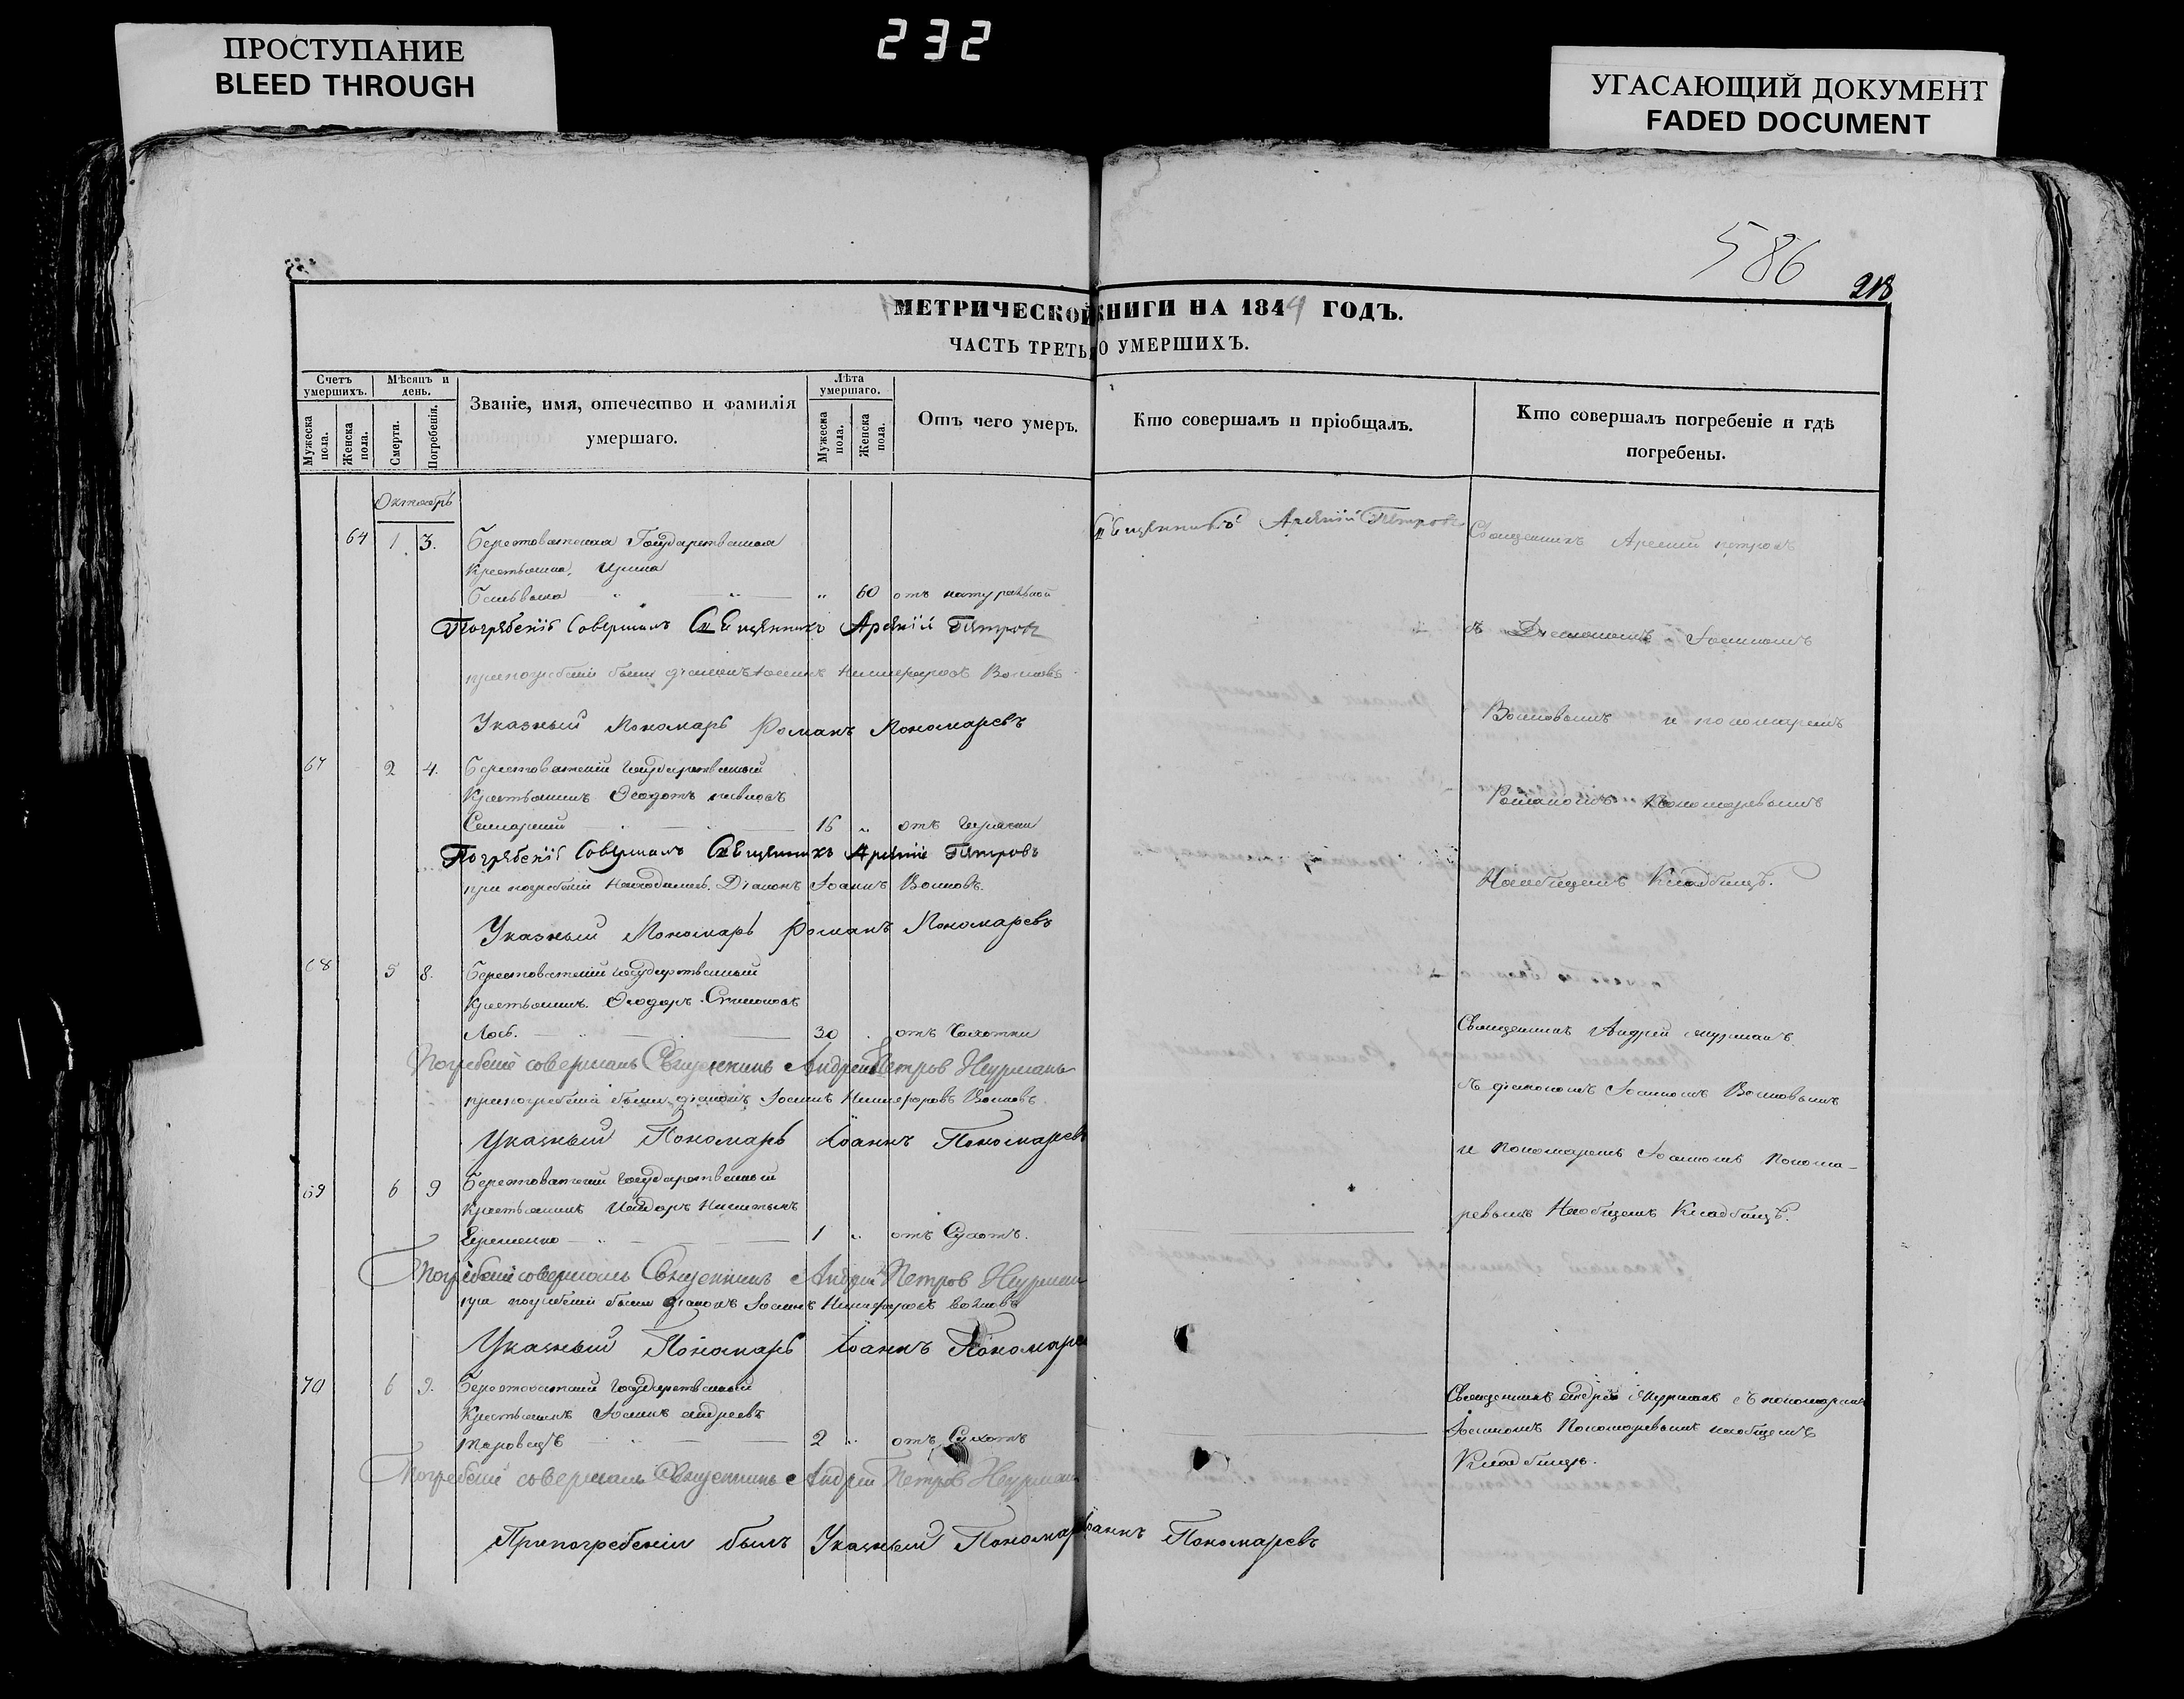 ПРОСТУПАНИЕ
BLEED THROUGH
232
УГАСАЮЩИЙ ДОКУМЕНТ
FADED DOCUMENT
586
218
МЕТРИЧЕСКОЙ КНИГИ НА 1844 ГОДЪ.
ЧАСТЬ ТРЕТЬ О УМЕРШИХЪ.
Счетъ умершихъ.
Мѣсяцъ и день.
Званіе, имя, отечество и фамилія умершаго.
Лѣта умершаго.
Отъ чего умеръ.
Кто совершалъ и пріобщалъ.
Кто совершалъ погребеніе и гдѣ погребены.
Мужеска пола.
Женска пола.
Смерти.
Погребенія.
Мужеска пола.
Женска пола.
Октябрь
64 1 3. Берестоватская Государственная
Крестьянка, Ирина
60 отъ натуральной
Священникъ Арсеній Петровъ
Погребеніе Совершалъ Священникъ Арсеній Петровъ
Указный Пономарь Романъ Пономаревъ
Священникъ Арсеній Петровъ
съ Діакономъ Іоанномъ
Волковымъ и пономаремъ
Романомъ Пономаревымъ
Наобщемъ Кладбищѣ.
67 2 4. Берестоватскій Государственный
Крестьянинъ Ѳеодотъ
16 отъ
Погребеніе Совершалъ Священникъ Арсеній Петровъ
при погребеніи находились Діаконъ Іоаннъ Волковъ.
Указный Пономарь Романъ Пономаревъ
68 5 8. Берестоватскій Государственный
Крестьянинъ Ѳеодоръ
30 отъ Чахотки
Погребеніе совершалъ Священникъ Андрей Петров
при погребеніи былъ діаконъ Іоаннъ Никифоровъ Волковъ
Указный Пономарь Іоаннъ Пономаревъ
Священникъ Андрей
съ діакономъ Іоанномъ Волковымъ
и пономаремъ Іоанномъ Понома-
ревымъ Наобщемъ Кладбищѣ.
69 6 9 Берестоватскій Государственный
Крестьянинъ
Еременко 1 отъ Сухотъ.
Погребеніе совершалъ Священникъ Андрей Петров
при погребеніи былъ діаконъ Іоаннъ Никифоровъ Волковъ
Указный Пономарь Іоаннъ Пономарев
70 6 9. Берестоватскій Государственный
Крестьянинъ Іоаннъ Андреевъ
2 отъ Сухотъ
Погребеніе совершалъ Священникъ Андрей Петров
Припогребеніи былъ Указный Пономарь Іоаннъ Пономаревъ
Священникъ Андрей съ пономаремъ
Іоанномъ Пономаревымъ наобщемъ
Кладбищѣ.